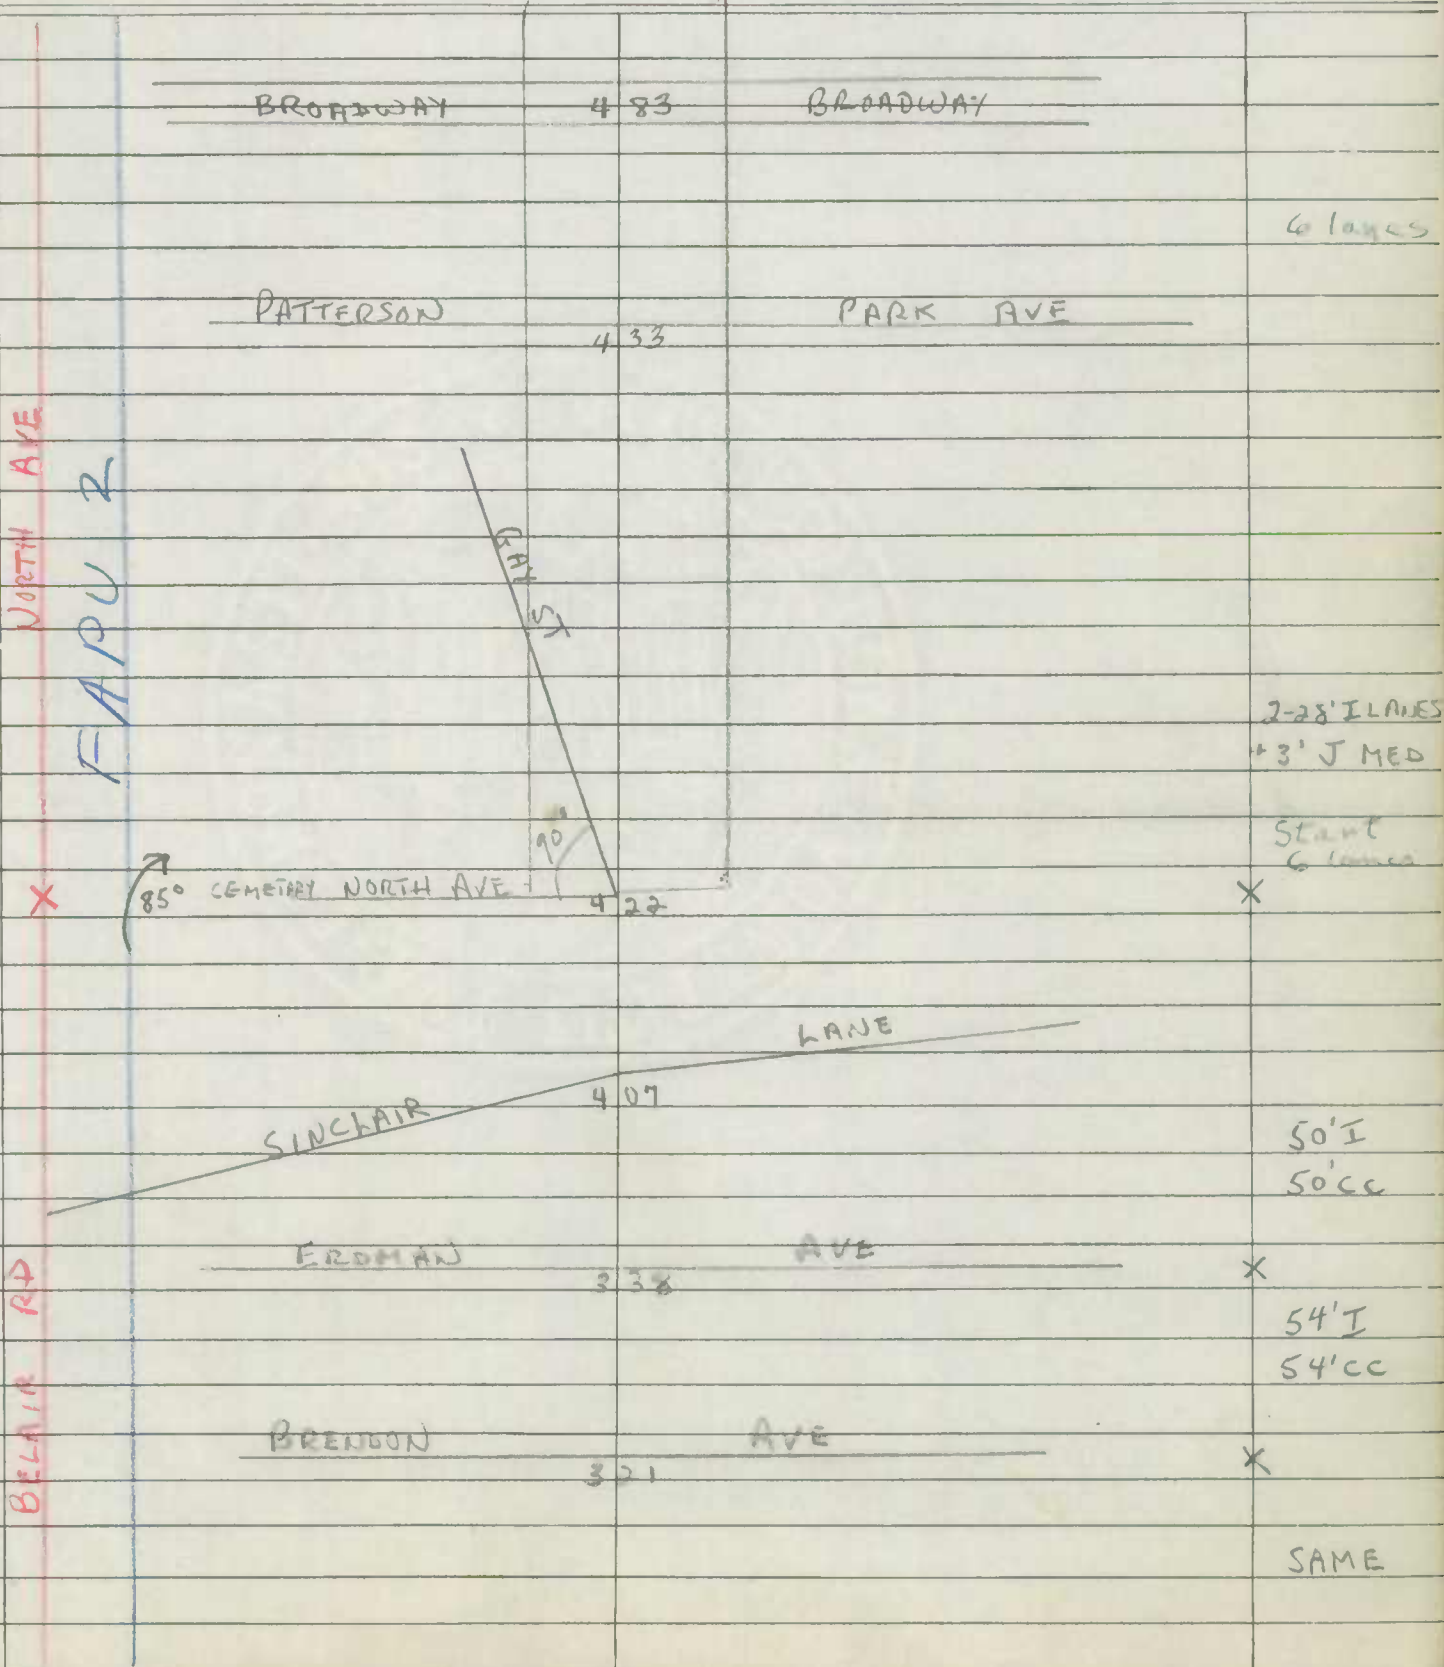 BROADWAY 4 83 BROADWAY
6 lanes
PATTERSON PARK AVE
4 33
NORTH AVE
FAPU 2
GAY ST
2-28' I LANES
+ 3' J MED
90°
Start
6 lanes
85° CEMETERY NORTH AVE 4 22
X
X
LANE
4 07
SINCLAIR
50' I
50' CC
ERDMAN AVE
3 38
X
BELAIR RD
54' I
54' CC
BRENDON AVE
3 21
X
SAME